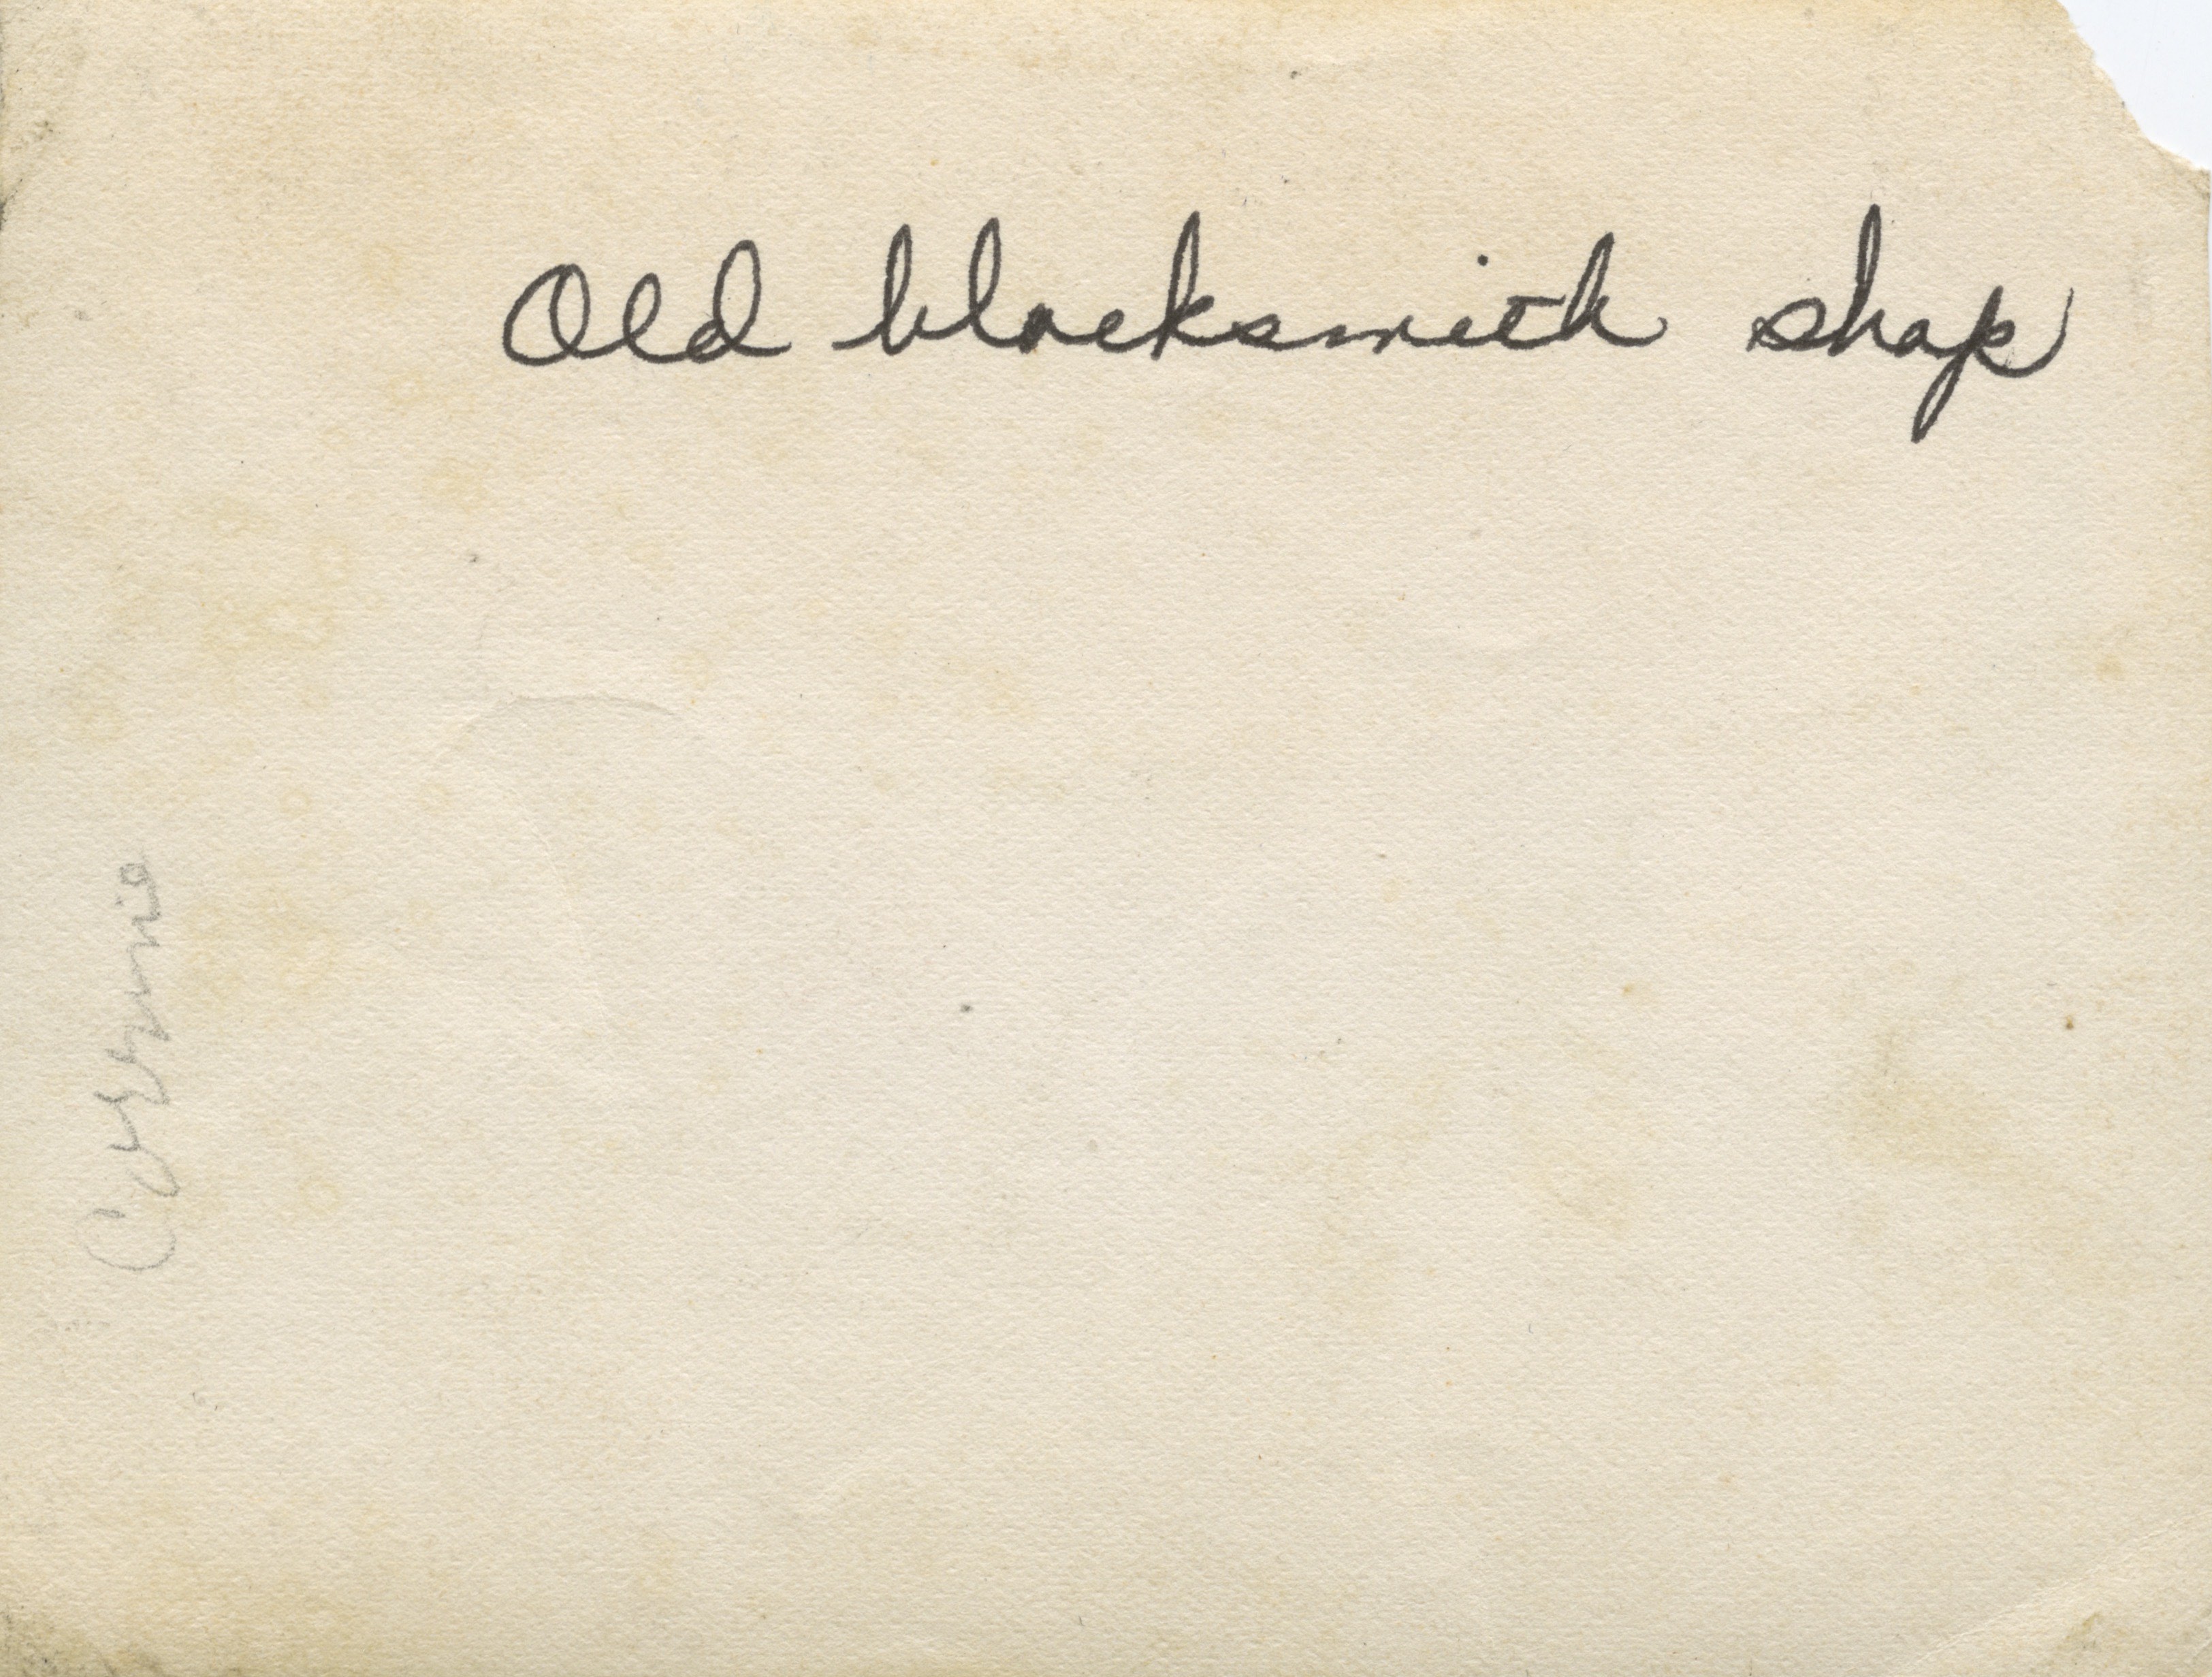 Old blacksmith shop